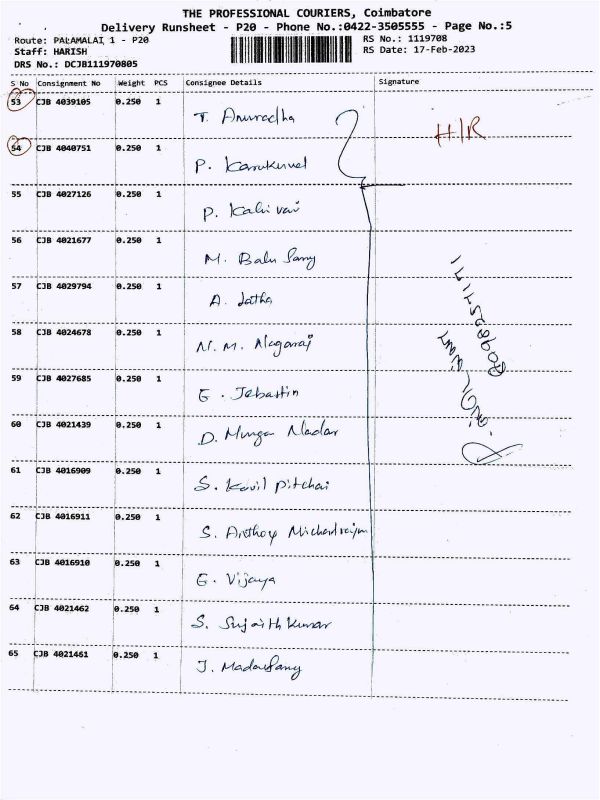 THE PROFESSIONAL COURIERS, Coimbatore
Delivery Runsheet - P20 - Phone No.:0422-3505555 - Page No.:5
Route: PALAMALAI 1 - P20
RS No.: 1119708
Staff: HARISH
RS Date: 17-Feb-2023
DRS No.: DCJB111970805
S No Consignment No Weight PCS Consignee Details Signature
53 CJB 4039105 0.250 1 T. Anuradha
H/R
54 CJB 4040751 0.250 1 P.
55 CJB 4027126 0.250 1 P.
56 CJB 4021677 0.250 1 M. Balu Samy
57 CJB 4029794 0.250 1 A. Latha
58 CJB 4024678 0.250 1 N. M. Nagaraj
59 CJB 4027685 0.250 1 G. Jebastin
60 CJB 4021439 0.250 1 D. Muruga Nadar
61 CJB 4016909 0.250 1 S. Kovil Pitchai
62 CJB 4016911 0.250 1 S. Anthony
63 CJB 4016910 0.250 1 G. Vijaya
64 CJB 4021462 0.250 1 S. Sujaith Kumar
65 CJB 4021461 0.250 1 J. Madasamy